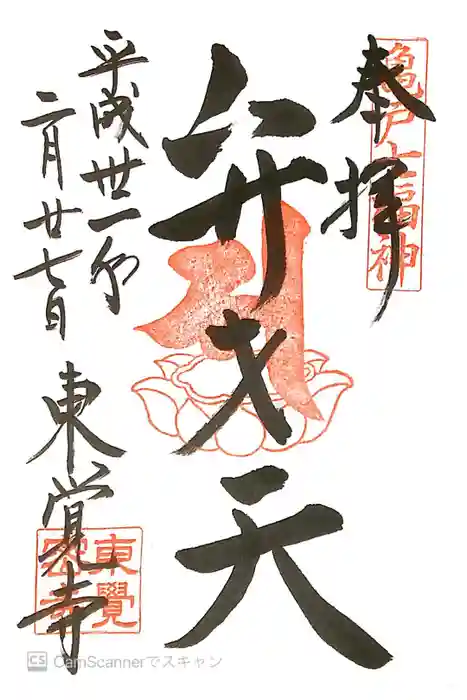 亀戸七福神
奉拝
弁才天
平成卅一年
二月廿七日
東覚寺
東覺
密寺
CS CamScannerでスキャン